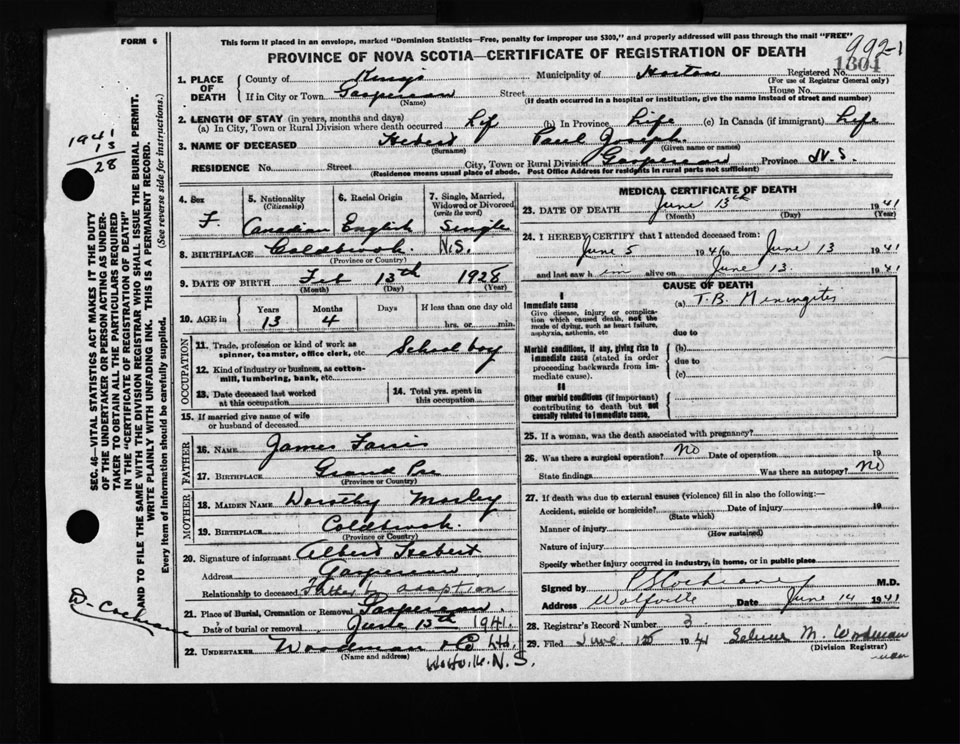 FORM 6
This form if placed in an envelope, marked "Dominion Statistics—Free, penalty for improper use $300," and properly addressed will pass through the mail "FREE"
PROVINCE OF NOVA SCOTIA—CERTIFICATE OF REGISTRATION OF DEATH
992-1
1. PLACE OF DEATH County of Kings Municipality of Horton Registered No. 1804
(For use of Registrar General only)
If in City or Town Gaspereau Street House No.
(Name) (If death occurred in a hospital or institution, give the name instead of street and number)
2. LENGTH OF STAY (in years, months and days)
(a) In City, Town or Rural Division where death occurred Life (b) In Province Life (c) In Canada (if immigrant) Life
3. NAME OF DECEASED Hebert Paul Joseph
(Surname) (Given name or names)
RESIDENCE No. Street City, Town or Rural Division Gaspereau Province N.S.
(Residence means usual place of abode. Post Office Address for residents in rural parts not sufficient)
1941
13
28
SEC. 46—VITAL STATISTICS ACT MAKES IT THE DUTY
OF THE UNDERTAKER OR PERSON ACTING AS UNDER-
TAKER TO OBTAIN ALL THE PARTICULARS REQUIRED
IN THE "CERTIFICATE OF REGISTRATION OF DEATH"
AND TO FILE THE SAME WITH THE DIVISION REGISTRAR WHO SHALL ISSUE THE BURIAL PERMIT.
WRITE PLAINLY WITH UNFADING INK. THIS IS A PERMANENT RECORD.
Every item of information should be carefully supplied. (See reverse side for instructions.)
D- Cochrane
4. Sex F.
5. Nationality (Citizenship) Canadian
6. Racial Origin English
7. Single, Married, Widowed or Divorced (write the word) Single
8. BIRTHPLACE Coldbrook N.S.
(Province or Country)
9. DATE OF BIRTH Feb 13th 1928
(Month) (Day) (Year)
10. AGE in Years Months Days If less than one day old
13 4 hrs. or min.
OCCUPATION
11. Trade, profession or kind of work as spinner, teamster, office clerk, etc School boy
12. Kind of industry or business, as cotton-mill, lumbering, bank, etc.
13. Date deceased last worked at this occupation
14. Total yrs. spent in this occupation
15. If married give name of wife or husband of deceased
FATHER
16. NAME James Farris
17. BIRTHPLACE Grand Pre
(Province or Country)
MOTHER
18. MAIDEN NAME Dorothy Mosley
19. BIRTHPLACE Coldbrook.
(Province or Country)
20. Signature of informant Albert Hebert
Address Gaspereau
Relationship to deceased Father by adoption
21. Place of Burial, Cremation or Removal Gaspereau.
Date of burial or removal June 15th 1941.
22. UNDERTAKER Woodman & Co Ltd.
(Name and address)
Wolfville N.S.
MEDICAL CERTIFICATE OF DEATH
23. DATE OF DEATH June 13th 1941
(Month) (Day) (Year)
24. I HEREBY CERTIFY that I attended deceased from:
June 5 1941 to June 13 1941
and last saw h im alive on June 13 1941
CAUSE OF DEATH
I
Immediate cause (a) T.B. Meningitis
Give disease, injury or complication which caused death, not the mode of dying, such as heart failure, asphyxia, asthenia, etc
due to
Morbid conditions, if any, giving rise to immediate cause (stated in order proceeding backwards from immediate cause).
(b)
due to
(c)
II
Other morbid conditions (if important) contributing to death but not causally related to immediate cause.
25. If a woman, was the death associated with pregnancy?
26. Was there a surgical operation? No Date of operation 19
State findings Was there an autopsy? No
27. If death was due to external causes (violence) fill in also the following:—
Accident, suicide or homicide? Date of injury 19
(State which)
Manner of injury
(How sustained)
Nature of injury
Specify whether injury occurred in industry, in home, or in public place
Signed by Cochrane M.D.
Address Wolfville Date June 14 1941
28. Registrar's Record Number 2
29. Filed June 15 1941 M. Woodman
(Division Registrar)